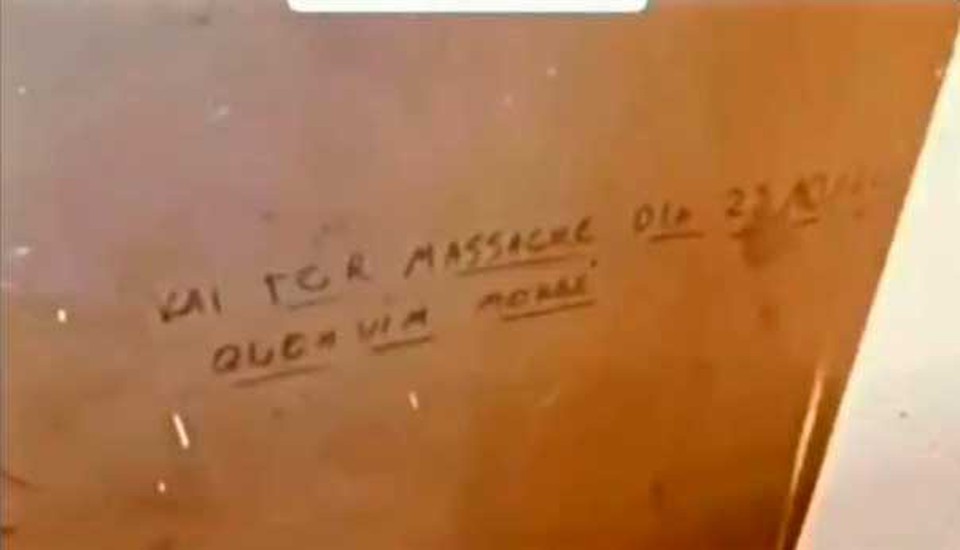 VAI TER MASSACRE DIA 23
QUEM VIM MORRE